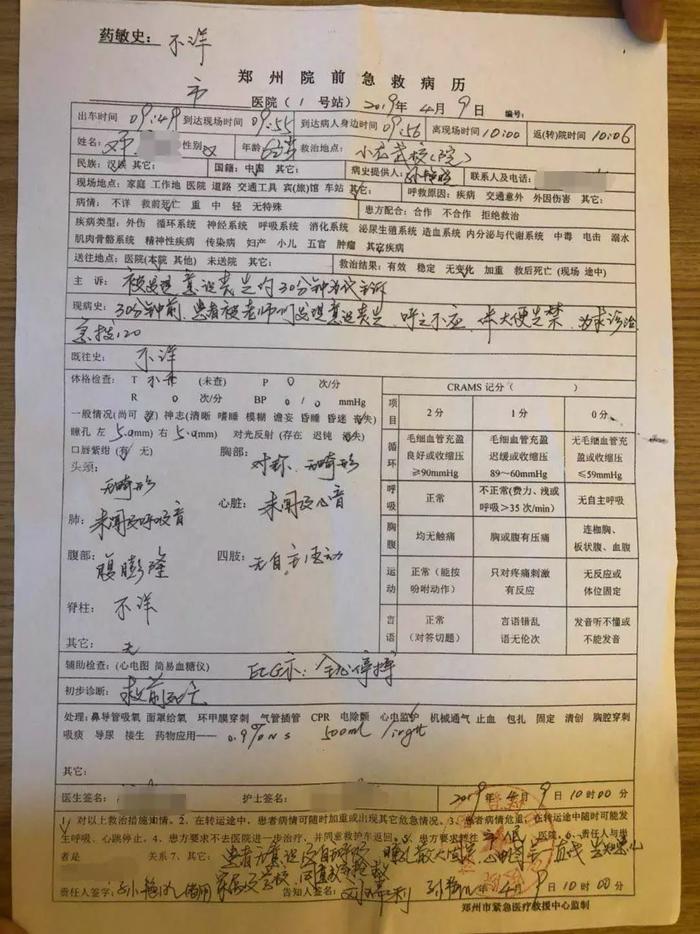 药敏史： 不详
郑州院前急救病历
市 医院（1 号站） 2019年 4月 9日 编号：
出车时间 09:49 到达现场时间 09:55 到达病人身边时间 09:56 离现场时间 10:00 返(转)院时间 10:06
姓名： 性别 女 年龄 救治地点： 小龙武校(院)
民族：汉族 其它： 国籍：中国 其它： 病史提供人： 联系人及电话：
现场地点：家庭 工作地 医院 道路 交通工具 宾(旅)馆 车站 其它 呼救原因：疾病 交通意外 外因伤害 其它
病情：不详 救前死亡 重 中 轻 无特殊 患方配合：合作 不合作 拒绝救治
疾病类型：外伤 循环系统 神经系统 呼吸系统 消化系统 泌尿生殖系统 造血系统 内分泌与代谢系统 中毒 电击 溺水
肌肉骨骼系统 精神性疾病 传染病 妇产 小儿 五官 肿瘤 其它疾病
送往地点：医院(本院 其他) 未送院 其它： 救治结果：有效 稳定 无变化 加重 救后死亡 (现场 途中)
主 诉： 被发现意识丧失约30分钟为代主诉
现病史： 30分钟前，患者被老师们发现意识丧失，呼之不应，伴大便失禁，为求诊治
急拨120
既往史： 不详
体格检查： T 不升 (未查) P 0 次/分 CRAMS 记分（ ）
R 0 次/分 BP 0/0 mmHg 项目 2分 1分 0分
一般情况(尚可 差) 神志(清晰 嗜睡 模糊 谵妄 昏睡 昏迷 丧失)
瞳孔 左 5.0mm) 右 5.0mm) 对光反射 (存在 迟钝 消失) 循环 毛细血管充盈良好或收缩压≥90mmHg 毛细血管充盈迟缓或收缩压89～60mmHg 无毛细血管充盈或收缩压≤59mmHg
口唇紫绀 (有 无) 胸部： 对称、无畸形
头颈： 无畸形 呼吸 正常 不正常(费力、浅或呼吸＞35 次/min) 无自主呼吸
肺： 未闻及呼吸音 心脏： 未闻及心音 胸腹 均无触痛 胸或腹有压痛 连枷胸、板状腹、血腹
腹部： 腹膨隆 四肢： 无自主活动 运动 正常（能按吩咐动作） 只对疼痛刺激有反应 无反应或体位固定
脊柱： 不详 言语 正常（对答切题） 言语错乱语无伦次 发音听不懂或不能发音
其它： 无
辅助检查：(心电图 简易血糖仪) ECG示：全心停搏
初步诊断： 救前死亡
处理：鼻导管吸氧 面罩给氧 环甲膜穿刺 气管插管 CPR 电除颤 心电监护 机械通气 止血 包扎 固定 清创 胸腔穿刺
吸痰 导尿 接生 药物应用—— 0.9%NS 500ml
其它：
医生签名： 护士签名： 2019年 4月 9日 10时00分
1、对以上救治措施知情。2、在转运途中，患者病情可随时加重或出现其它危急情况。3、患者病情危重，在转运途中随时可能发
生呼吸、心跳停止。4、患方要求不去医院进一步治疗，并同意救护车返回。5、患方要求转往 医院。6、责任人与患
者是 关系7、 患者为意识及自主呼吸 瞳孔散大固定，心电图呈一直线
家属及学校
责任人签字： 告知人签名： 年 4月 9日 10时00分
郑州市紧急医疗救援中心监制